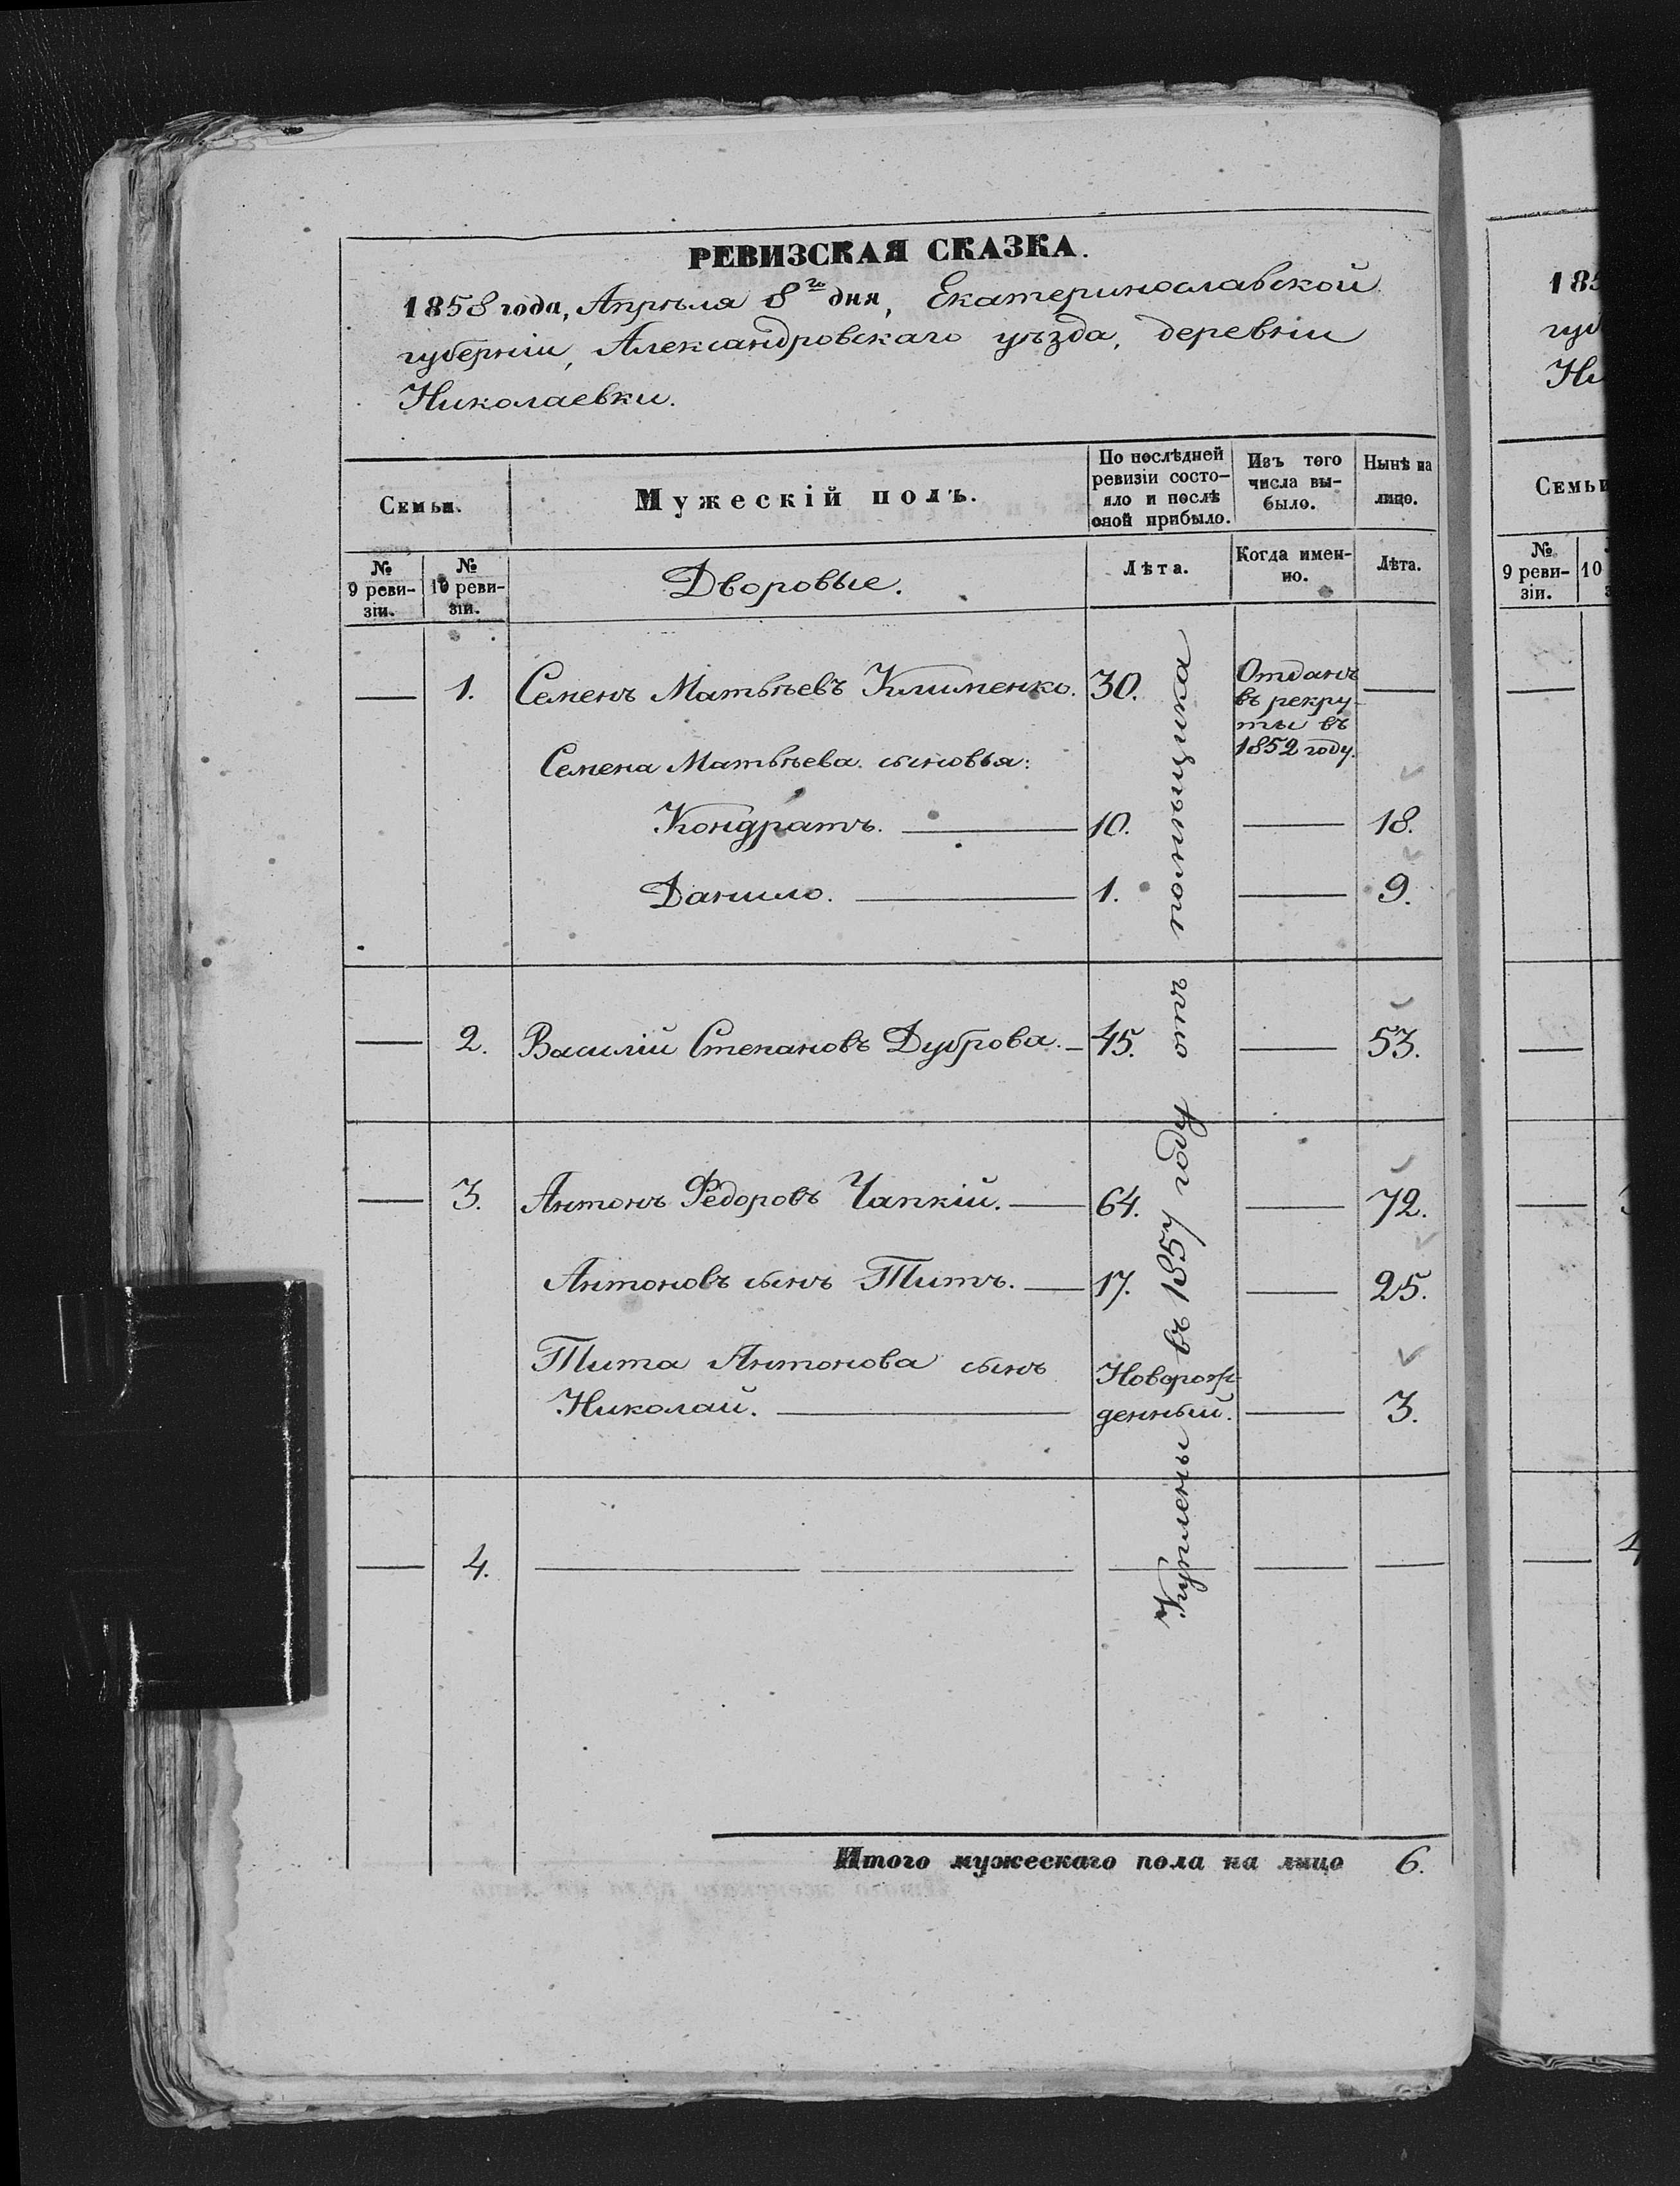 РЕВИЗСКАЯ СКАЗКА.
1858 года, Апрѣля 8го дня, Екатеринославской
губерніи, Александровскаго уѣзда, деревни
Николаевки.
Семьи.
Мужескій полъ.
По послѣдней
ревизіи состо-
яло и послѣ
оной прибыло.
Изъ того
числа вы-
было.
Нынѣ на
лицо.
№
9 реви-
зіи.
№
10 реви-
зіи.
Дворовые.
Лѣта.
Когда имен-
но.
Лѣта.
— 1. Семенъ Матвѣевъ Клименко. 30. —
Отданъ
въ рекру-
ты въ
1852 году.
Семена Матвѣева сыновья:
Кондратъ. — 10. — 18.
Данило. — 1. — 9.
— 2. Василій Степановъ Дуброва. — 45. — 53.
— 3. Антонъ Федоровъ Чапкій. — 64. — 72.
Антоновъ сынъ Титъ. — 17. — 25.
Тита Антонова сынъ Новорож-
Николай. — денный. — 3.
— 4. — — — — —
Куплены въ 1857 году отъ помѣщика
Итого мужескаго пола на лицо 6.
185
губ
Ни
Семьи
№
9 реви-
зіи.
10
—
—
— 3
— 4